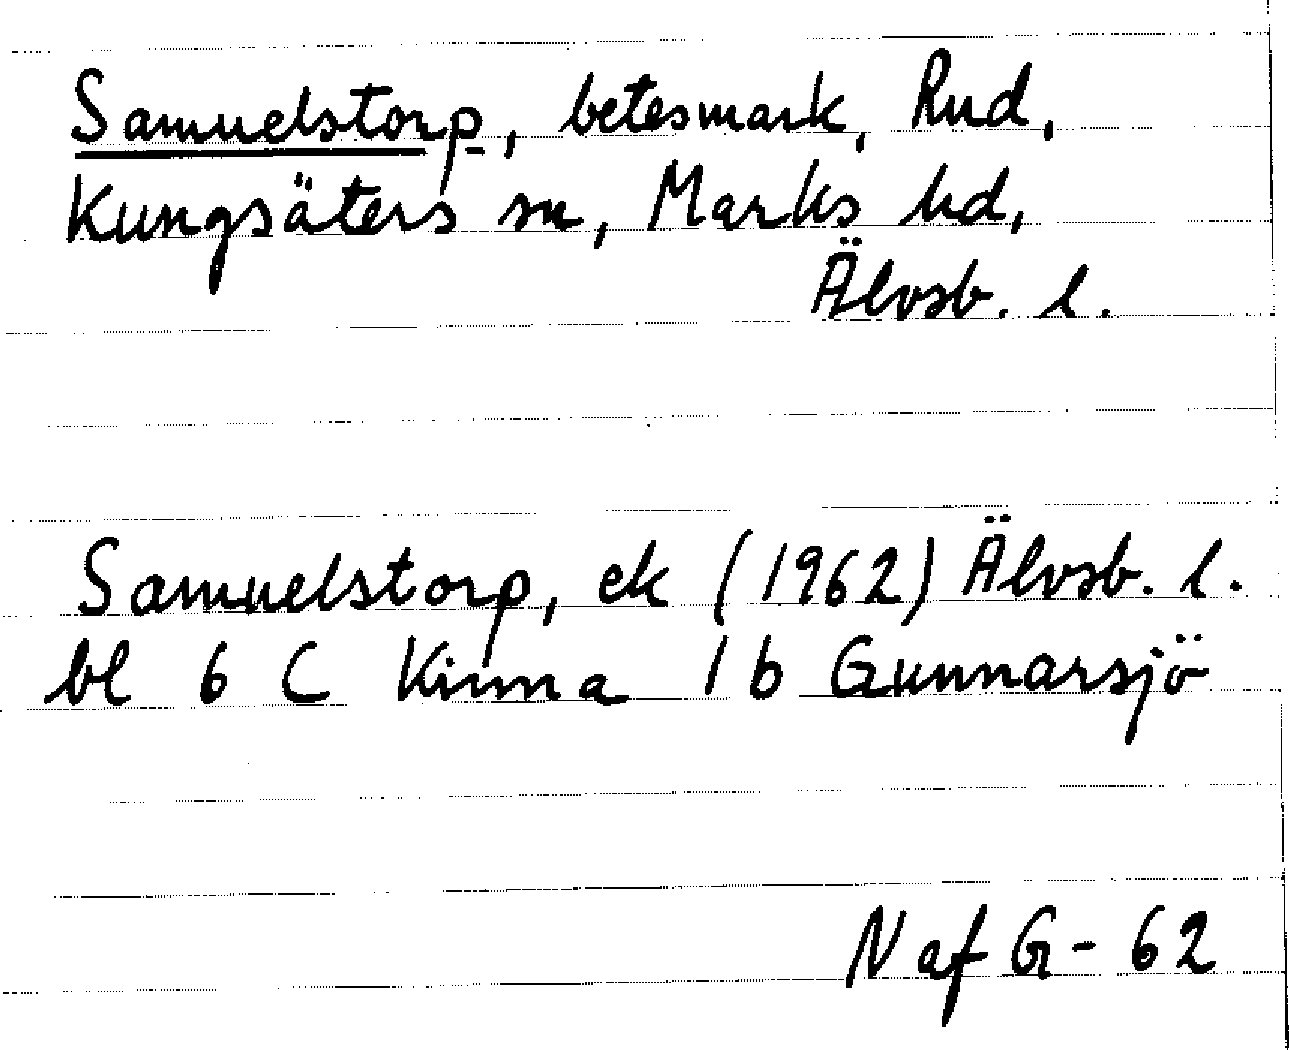 Samuelstorp, betesmark, Rud,
Kungsäters sn, Marks hd,
Älvsb. l.
Samuelstorp, ek (1962) Älvsb. l.
bl 6 C Kinna 1 b Gunnarsjö
N af G - 62